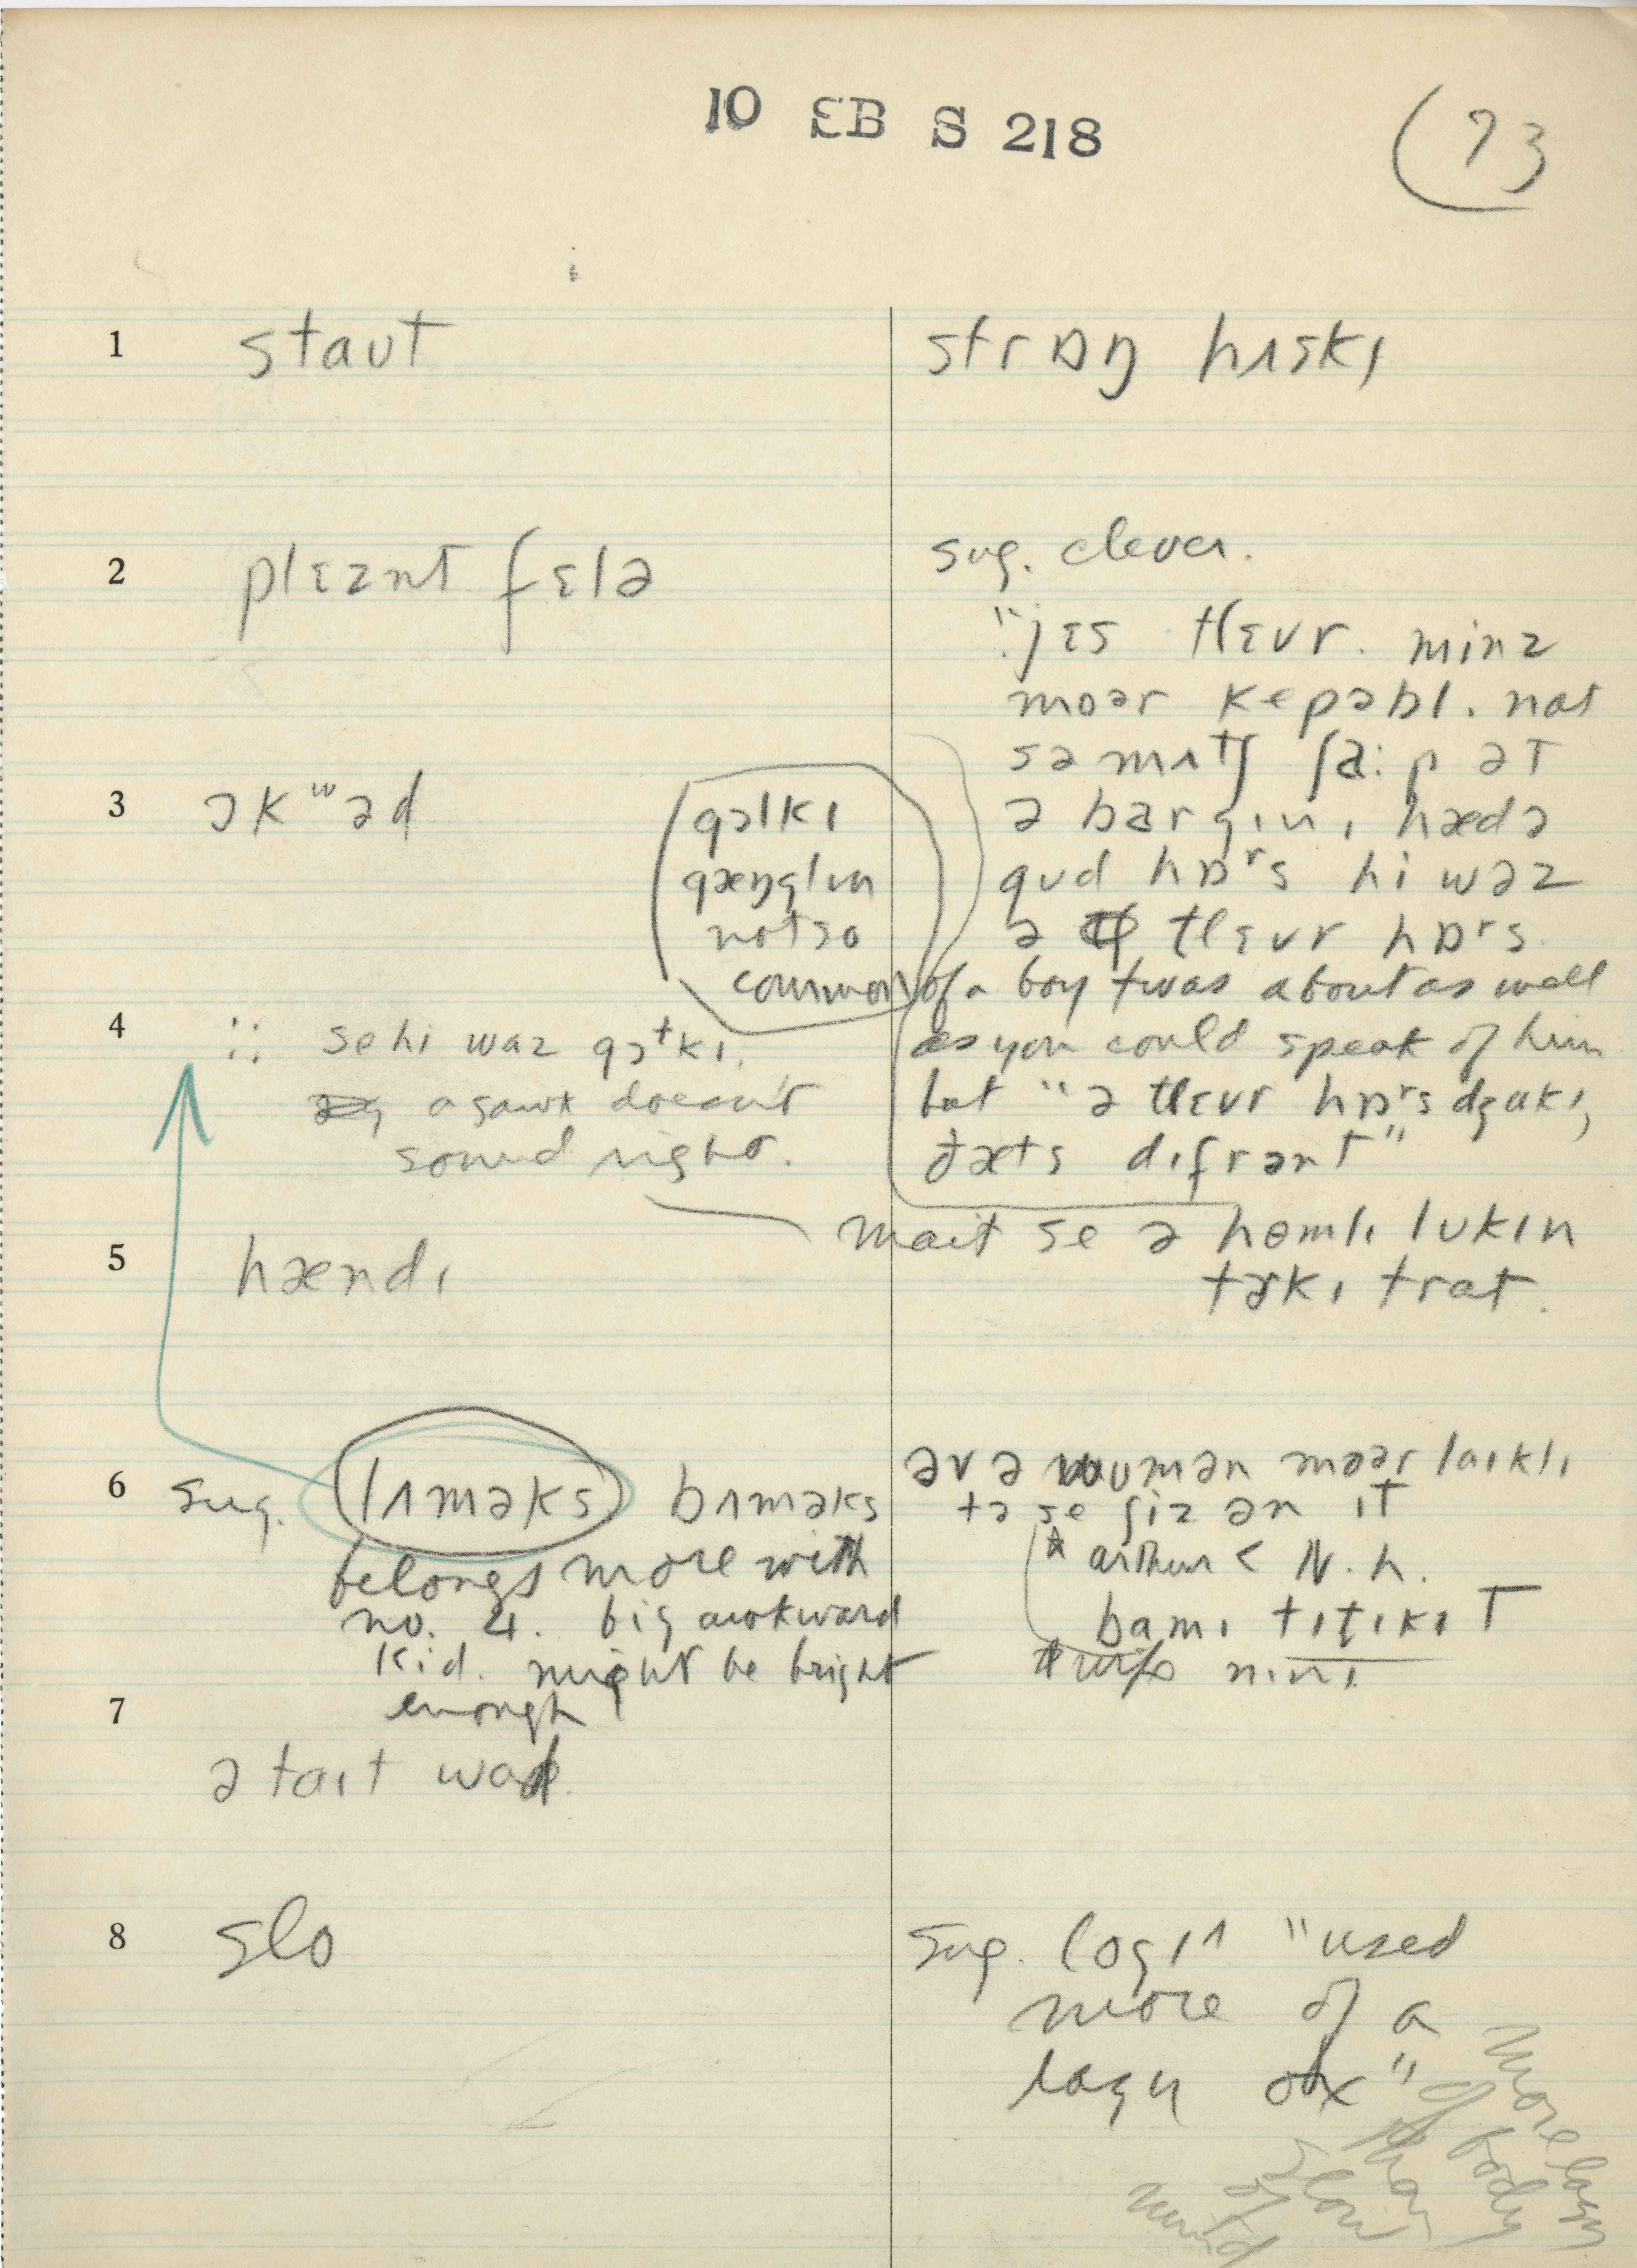 10 EB S 218
73
1 staʊt
strɒŋ hʌskɪ
2 plɛznt fɛlə
sug. clever.
"jɛs tlɛvr. minz
moər kepəbl. nat
sə mʌtʃ ʃa:p ət
ə bargɪn, hædə
gʊd hɒʳs hi wəz
ə tlɛvr hɒʳs.
of a boy twas about as well
as you could speak of him
but "ə tlɛvr hɒʳs dʒɑkɪ,
ðæts dɪfrənt"
3 ɔkʷəd
gɔlkɪ
gæŋglɪn
not so
common
4 :: se hi waz gɔtkɪ.
a gawk doesn't
sound right.
mait se ə homlɪ lʊkɪn
tɝkɪ trat.
5 hændɪ
6 sug. lʌməks bʌməks
belongs more with
no. 4. big awkward
kid. might be bright
enough
əv ə wʊmən moər laɪklɪ
tə se ʃiz ən ɪt
arthur < N. h.
7
ə taɪt wad.
8 slo
sug. logɪ "used
more of a
lazy ox"
more lazy
of body
than
slow
of
mind